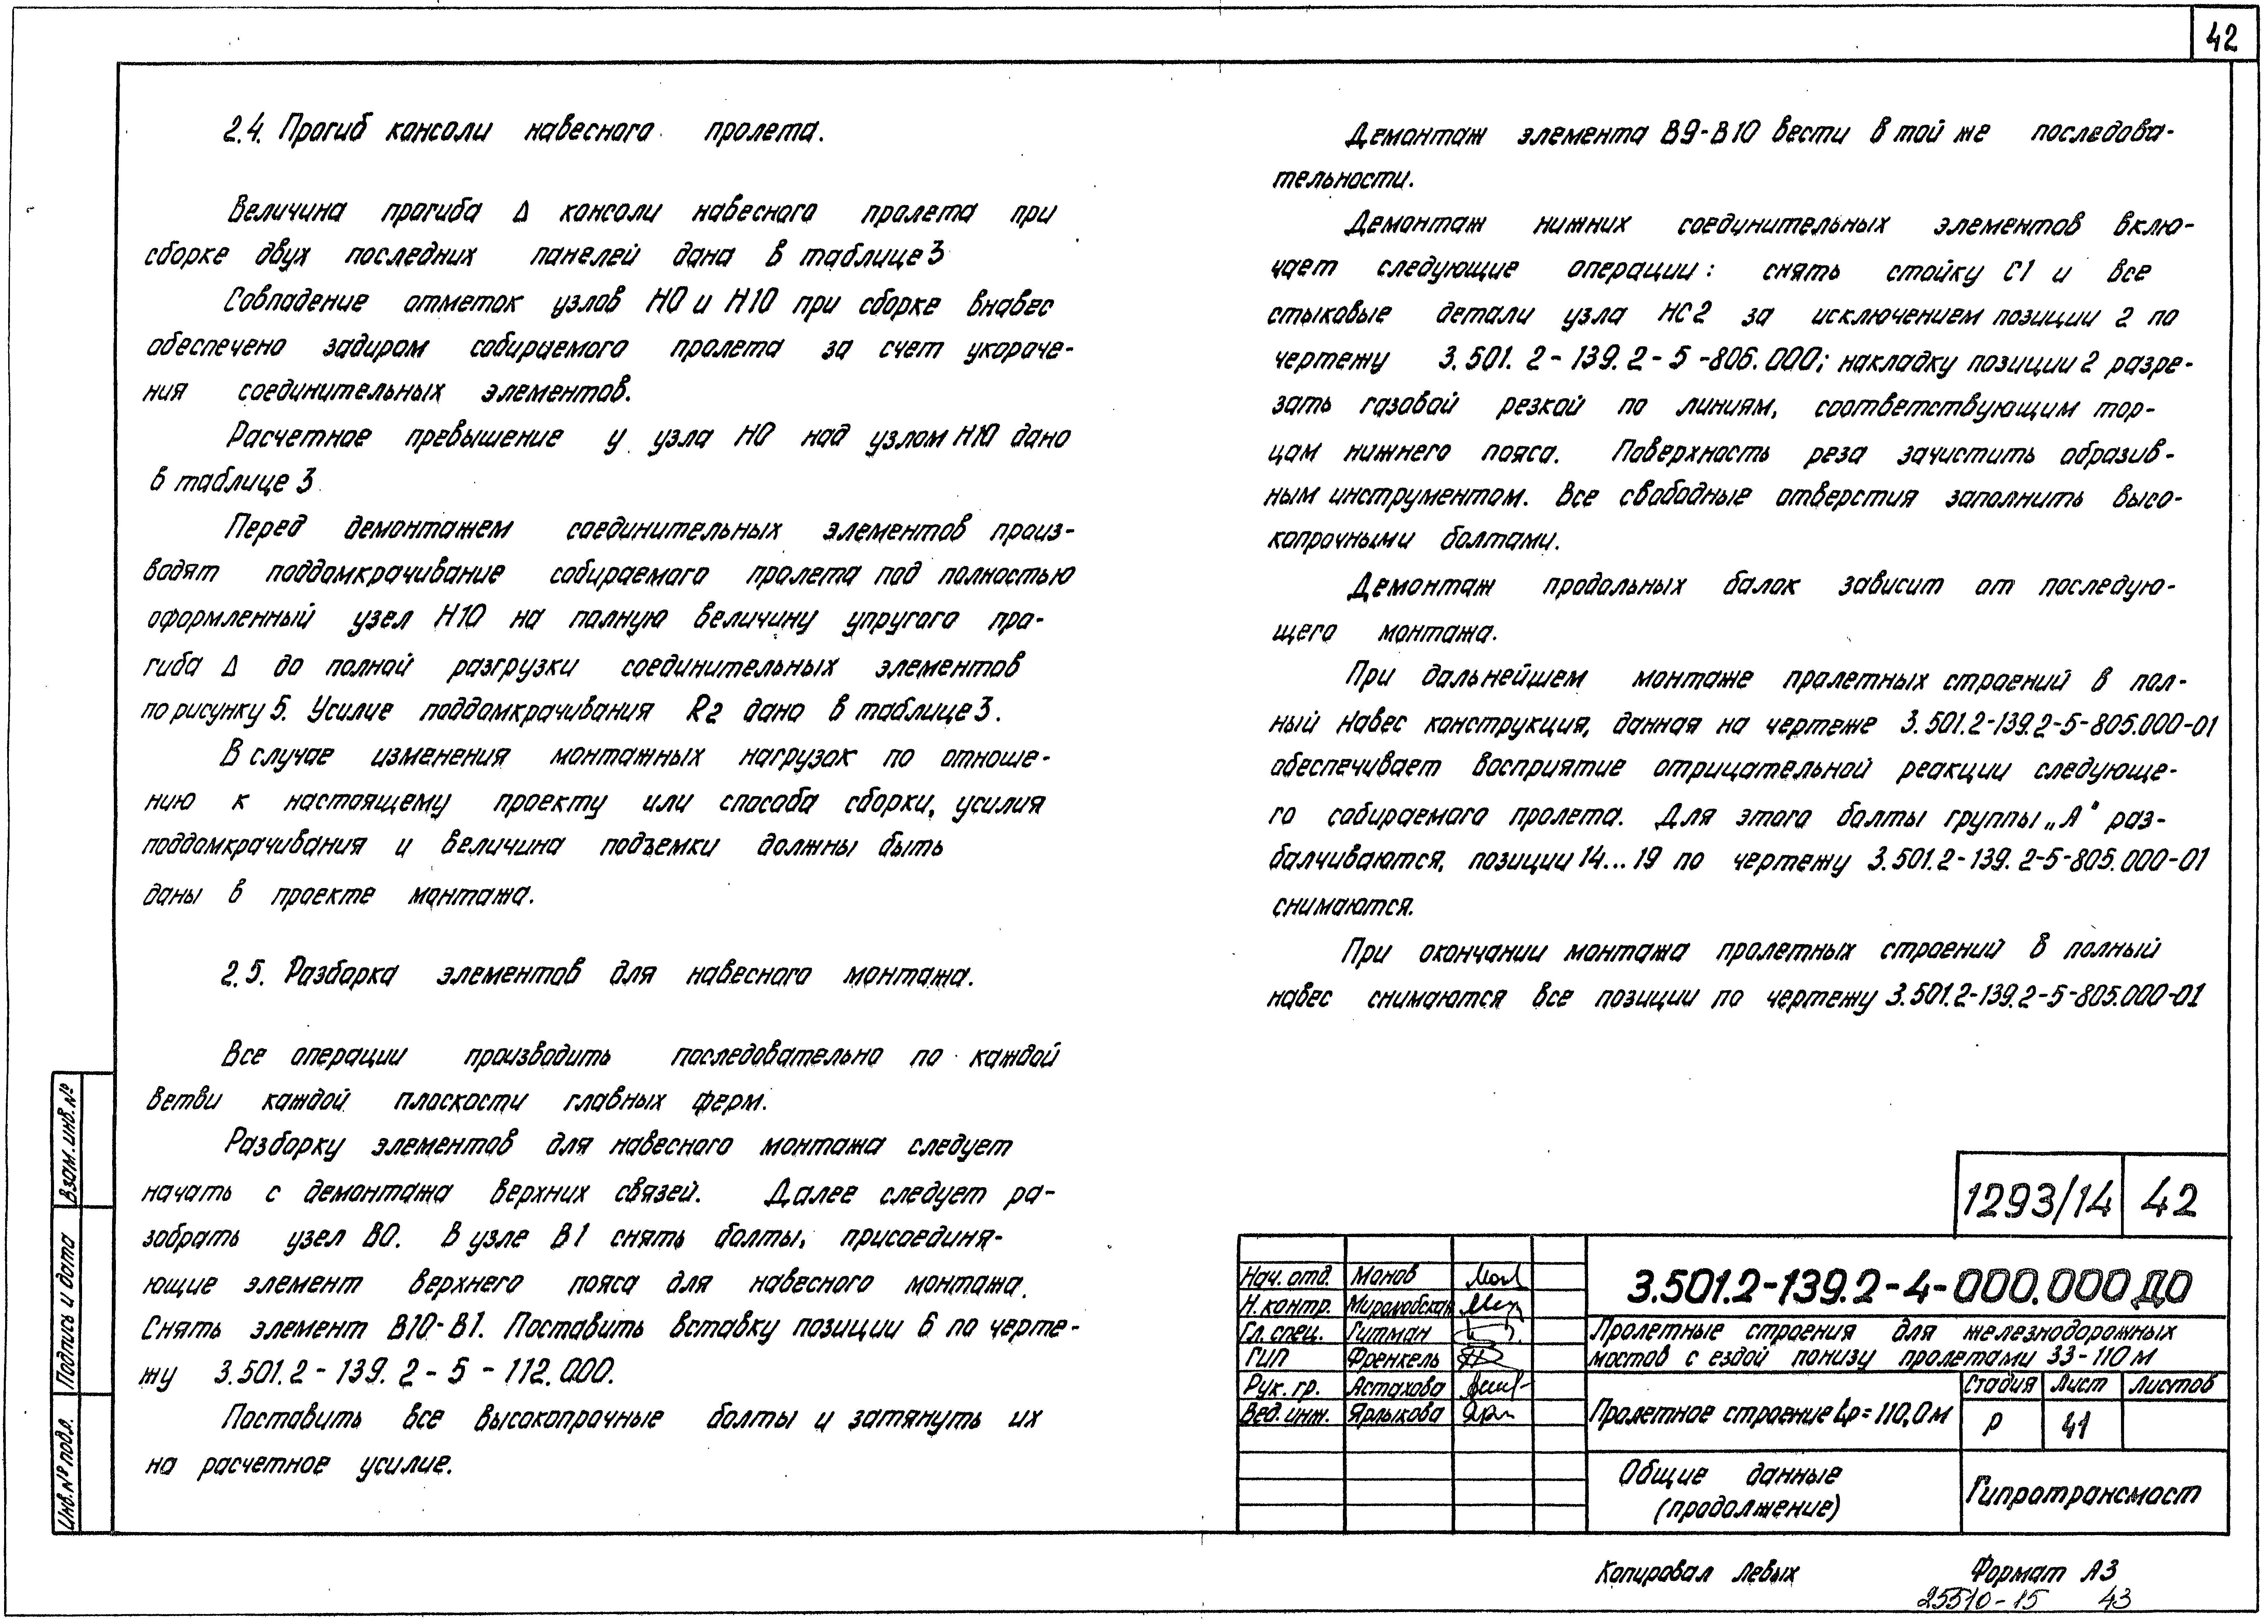 42
2.4. Прогиб консоли навесного пролета.
Величина прогиба Δ консоли навесного пролета при
сборке двух последних панелей дана в таблице 3
Совпадение отметок узлов Н0 и Н10 при сборке внавес
обеспечено задиром собираемого пролета за счет укороче-
ния соединительных элементов.
Расчетное превышение у узла Н0 над узлом Н10 дано
в таблице 3
Перед демонтажем соединительных элементов произ-
водят поддомкрачивание собираемого пролета под полностью
оформленный узел Н10 на полную величину упругого про-
гиба Δ до полной разгрузки соединительных элементов
по рисунку 5. Усилие поддомкрачивания R2 дано в таблице 3.
В случае изменения монтажных нагрузок по отноше-
нию к настоящему проекту или способа сборки, усилия
поддомкрачивания и величина подъемки должны быть
даны в проекте монтажа.
2.5. Разборка элементов для навесного монтажа.
Все операции производить последовательно по каждой
ветви каждой плоскости главных ферм.
Разборку элементов для навесного монтажа следует
начать с демонтажа верхних связей. Далее следует ра-
зобрать узел В0. В узле В1 снять болты, присоединя-
ющие элемент верхнего пояса для навесного монтажа.
Снять элемент В10-В1. Поставить вставку позиции 6 по черте-
жу 3.501.2-139.2-5-112.000.
Поставить все высокопрочные болты и затянуть их
на расчетное усилие.
Демонтаж элемента В9-В10 вести в той же последова-
тельности.
Демонтаж нижних соединительных элементов вклю-
чает следующие операции: снять стойку С1 и все
стыковые детали узла НС2 за исключением позиции 2 по
чертежу 3.501.2-139.2-5-806.000; накладку позиции 2 разре-
зать газовой резкой по линиям, соответствующим тор-
цам нижнего пояса. Поверхность реза зачистить образив-
ным инструментом. Все свободные отверстия заполнить высо-
копрочными болтами.
Демонтаж продольных балок зависит от последую-
щего монтажа.
При дальнейшем монтаже пролетных строений в пол-
ный навес конструкция, данная на чертеже 3.501.2-139.2-5-805.000-01
обеспечивает восприятие отрицательной реакции следующе-
го собираемого пролета. Для этого болты группы „А" раз-
балчиваются, позиции 14...19 по чертежу 3.501.2-139.2-5-805.000-01
снимаются.
При окончании монтажа пролетных строений в полный
навес снимаются все позиции по чертежу 3.501.2-139.2-5-805.000-01
Взам. инв. №
Подпись и дата
Инв. № подл.
1293/14 42
3.501.2-139.2-4-000.000 ДО
Нач. отд. Монов
Н. контр. Миролюбская
Гл. спец. Гитман
ГИП Френкель
Рук. гр. Астахова
Вед. инж. Ярлыкова
Пролетные строения для железнодорожных
мостов с ездой понизу пролетами 33-110 м
Пролетное строение Lр=110,0м
Стадия Лист Листов
Р 41
Общие данные
(продолжение)
Гипротрансмост
Копировал Левых Формат А3
25510-15 43